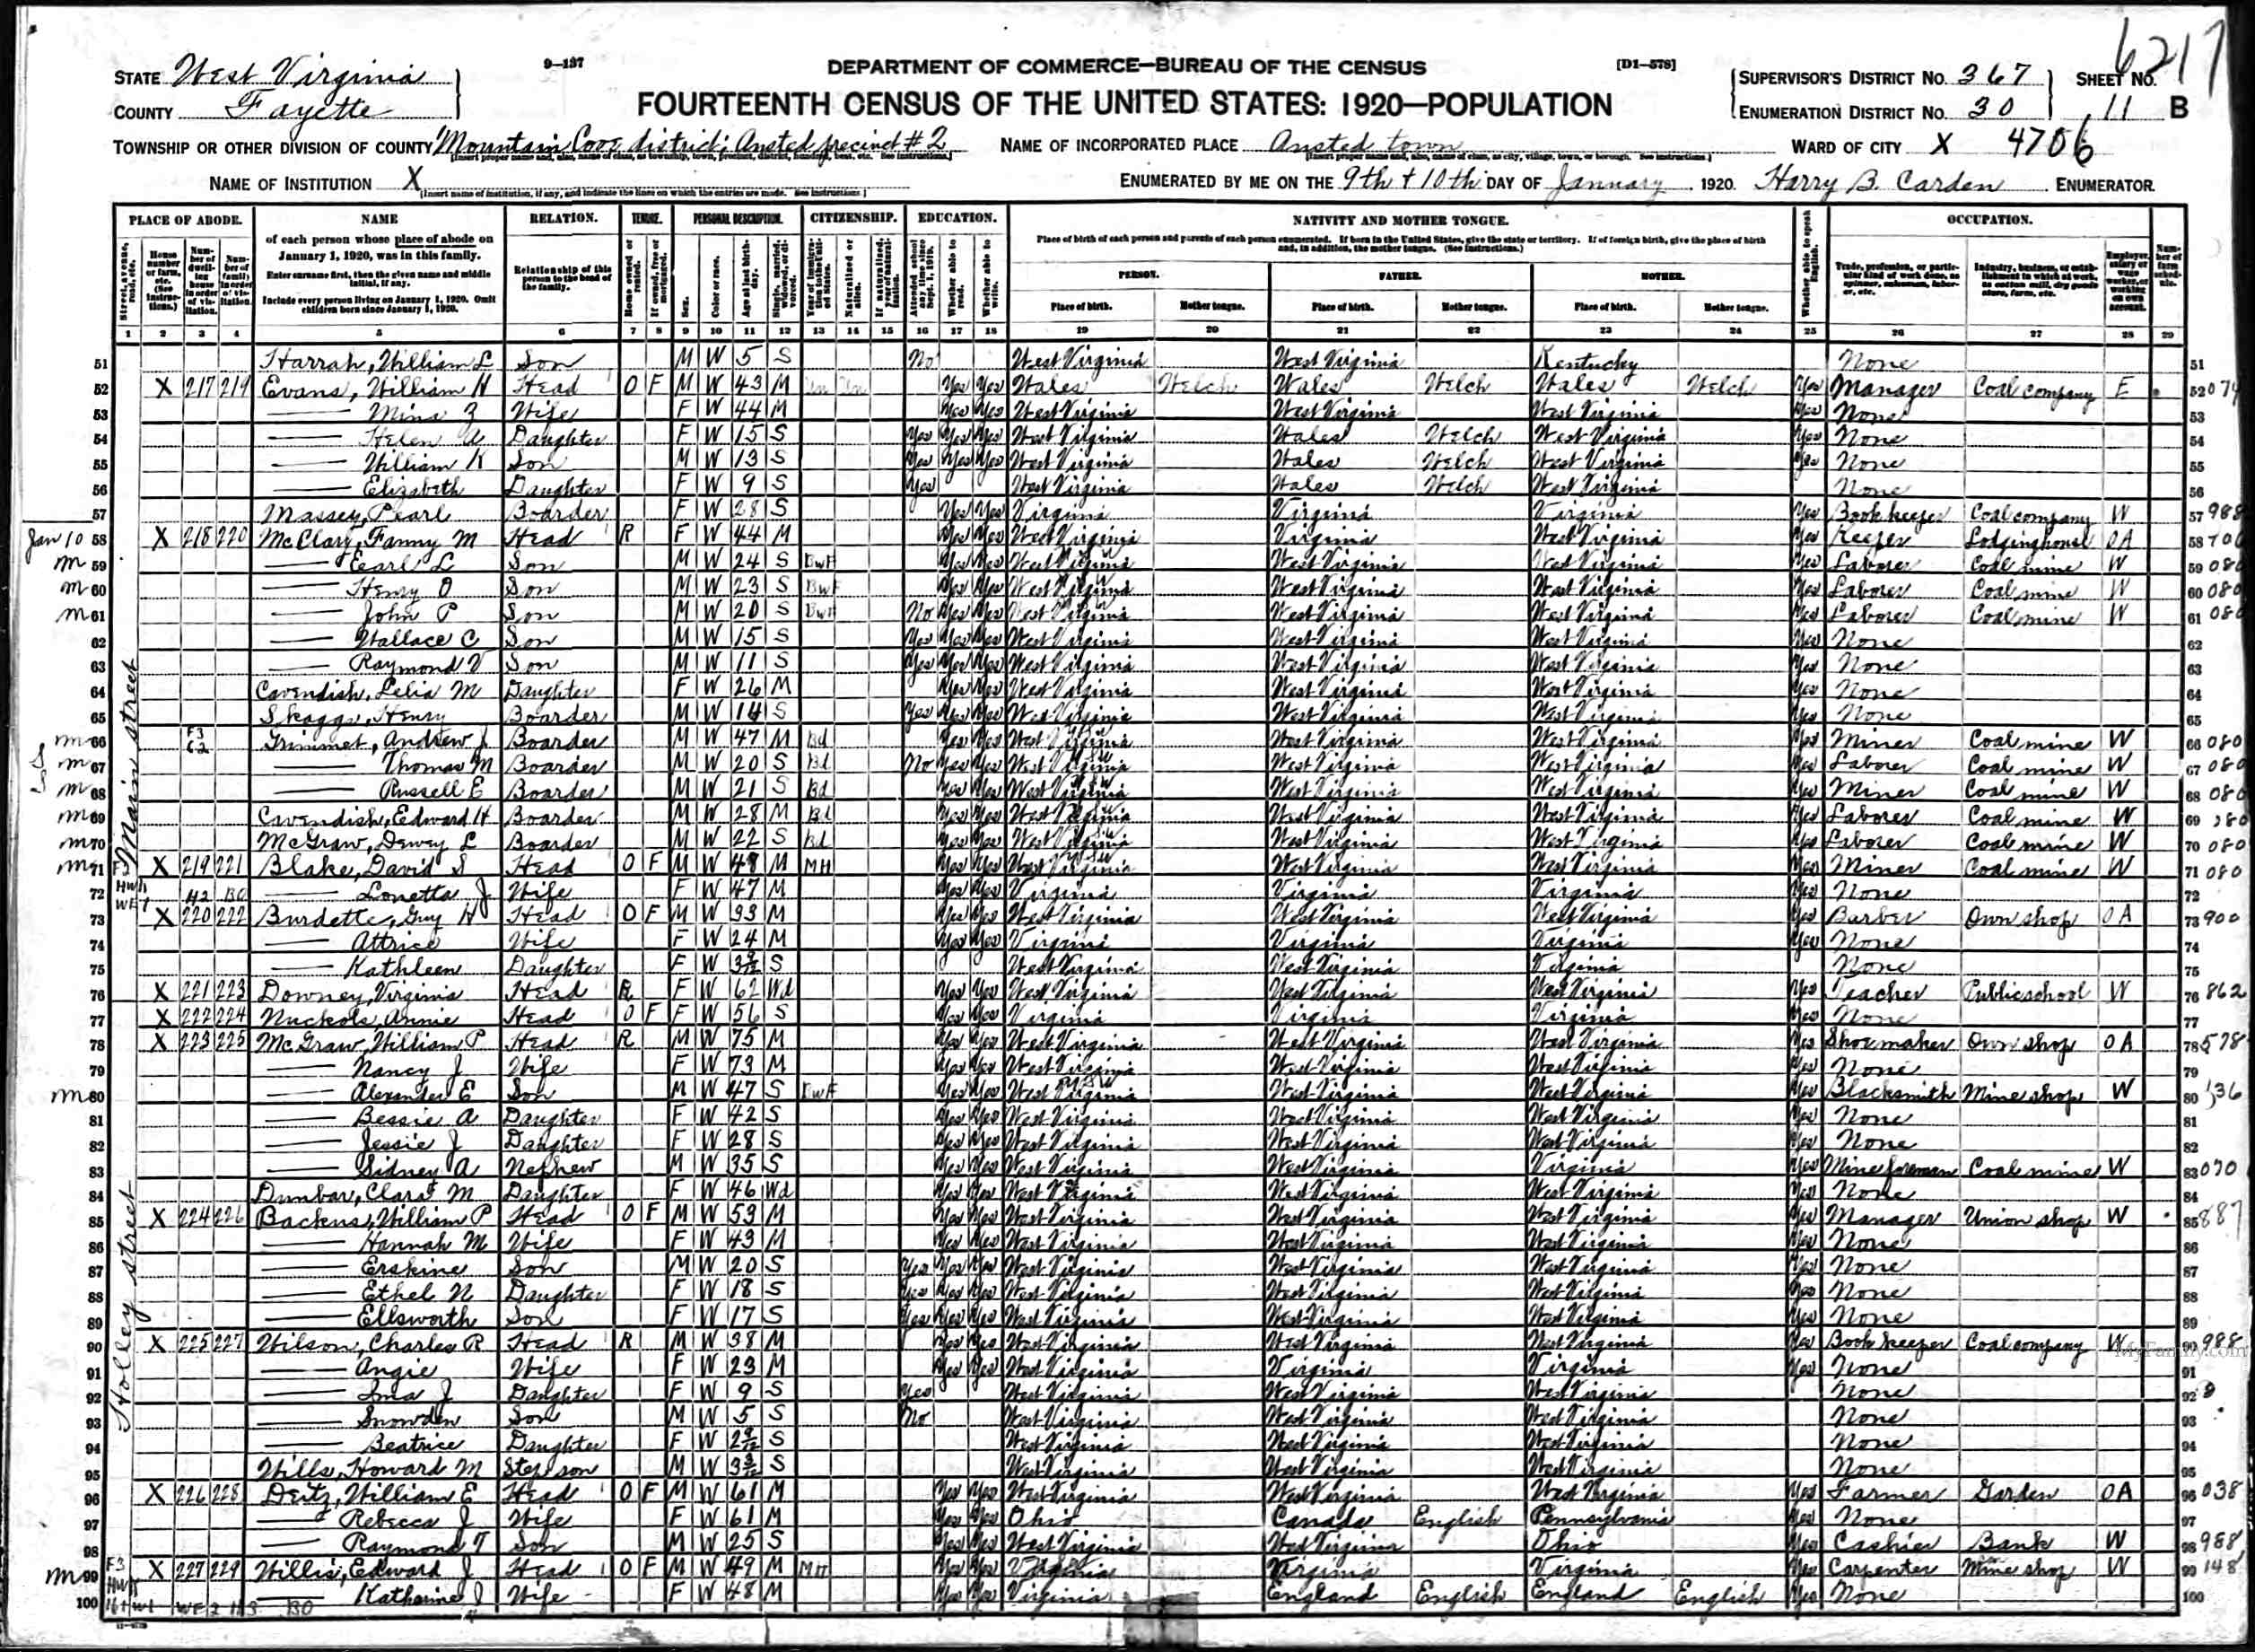 6217
STATE West Virginia
COUNTY Fayette
9—137
DEPARTMENT OF COMMERCE—BUREAU OF THE CENSUS
[D1—578]
FOURTEENTH CENSUS OF THE UNITED STATES: 1920—POPULATION
SUPERVISOR'S DISTRICT No. 367
ENUMERATION DISTRICT No. 30
SHEET No. 11 B
TOWNSHIP OR OTHER DIVISION OF COUNTY Mountain Cove district; Ansted precinct #2
NAME OF INCORPORATED PLACE Ansted town
WARD OF CITY X 4706
NAME OF INSTITUTION X
ENUMERATED BY ME ON THE 9th + 10th DAY OF January 1920. Harry B. Carden ENUMERATOR.
PLACE OF ABODE. NAME RELATION. TENURE. PERSONAL DESCRIPTION. CITIZENSHIP. EDUCATION. NATIVITY AND MOTHER TONGUE. OCCUPATION.
of each person whose place of abode on January 1, 1920, was in this family.
Enter surname first, then the given name and middle initial, if any.
Include every person living on January 1, 1920. Omit children born since January 1, 1920.
Relationship of this person to the head of the family.
Place of birth of each person and parents of each person enumerated. If born in the United States, give the state or territory. If of foreign birth, give the place of birth and, in addition, the mother tongue. (See Instructions.)
PERSON. FATHER. MOTHER.
Place of birth. Mother tongue. Place of birth. Mother tongue. Place of birth. Mother tongue.
1 2 3 4 5 6 7 8 9 10 11 12 13 14 15 16 17 18 19 20 21 22 23 24 25 26 27 28 29
51 Harrah, William L Son M W 5 S No West Virginia West Virginia Kentucky None 51
52 X 217 219 Evans, William H Head O F M W 43 M Un Un Yes Yes Wales Welch Wales Welch Wales Welch Yes Manager Coal company E 52
53 — Mina Z Wife F W 44 M Yes Yes West Virginia West Virginia West Virginia Yes None 53
54 — Helen A Daughter F W 15 S Yes Yes Yes West Virginia Wales Welch West Virginia Yes None 54
55 — William K Son M W 13 S Yes Yes Yes West Virginia Wales Welch West Virginia Yes None 55
56 — Elizabeth Daughter F W 9 S Yes West Virginia Wales Welch West Virginia None 56
57 Massey, Pearl Boarder F W 28 S Yes Yes Virginia Virginia Virginia Yes Bookkeeper Coal company W 57 988
Jan 10 58 X 218 220 McClary, Fanny M Head R F W 44 M Yes Yes West Virginia Virginia West Virginia Yes Keeper Lodging house OA 58
m 59 — Earl L Son M W 24 S Yes Yes West Virginia West Virginia West Virginia Yes Laborer Coal mine W 59 080
m 60 — Henry O Son M W 23 S Yes Yes West Virginia West Virginia West Virginia Yes Laborer Coal mine W 60 080
m 61 — John P Son M W 20 S No Yes Yes West Virginia West Virginia West Virginia Yes Laborer Coal mine W 61 080
62 — Wallace C Son M W 15 S Yes Yes Yes West Virginia West Virginia West Virginia Yes None 62
63 — Raymond V Son M W 11 S Yes Yes Yes West Virginia West Virginia West Virginia Yes None 63
Main street
64 Cavendish, Lelia M Daughter F W 26 M Yes Yes West Virginia West Virginia West Virginia Yes None 64
65 Skaggs, Henry Boarder M W 14 S Yes Yes Yes West Virginia West Virginia West Virginia Yes None 65
m 66 Grimmet, Andrew J Boarder M W 47 M Bd Yes Yes West Virginia West Virginia West Virginia Yes Miner Coal mine W 66 080
m 67 — Thomas M Boarder M W 20 S Bd No Yes Yes West Virginia West Virginia West Virginia Yes Laborer Coal mine W 67 080
m 68 — Russell E Boarder M W 21 S Bd Yes Yes West Virginia West Virginia West Virginia Yes Miner Coal mine W 68 080
m 69 Cavendish, Edward H Boarder M W 28 M Bd Yes Yes West Virginia West Virginia West Virginia Yes Laborer Coal mine W 69 080
m 70 McGraw, Dewey L Boarder M W 22 S Bd Yes Yes West Virginia West Virginia West Virginia Yes Laborer Coal mine W 70 080
m 71 X 219 221 Blake, David S Head O F M W 48 M MH Yes Yes West Virginia West Virginia West Virginia Yes Miner Coal mine W 71 080
72 — Lonetta J Wife F W 47 M Yes Yes Virginia Virginia Virginia Yes None 72
73 X 220 222 Burdette, Guy H Head O F M W 33 M Yes Yes West Virginia West Virginia West Virginia Yes Barber Own shop OA 73 900
74 — Attrice Wife F W 24 M Yes Yes Virginia Virginia Virginia Yes None 74
75 — Kathleen Daughter F W S West Virginia West Virginia Virginia None 75
76 X 221 223 Downey, Virginia Head R F W 62 Wd Yes Yes West Virginia West Virginia West Virginia Yes Teacher Public school W 76 862
77 X 222 224 Nuckols, Annie Head O F F W 56 S Yes Yes Virginia Virginia Virginia Yes None 77
78 X 223 225 McGraw, William P Head R M W 75 M Yes Yes West Virginia West Virginia West Virginia Yes Shoemaker Own shop OA 78 578
79 — Nancy J Wife F W 73 M Yes Yes West Virginia West Virginia West Virginia Yes None 79
m 80 — Alexander E Son M W 47 S Yes Yes West Virginia West Virginia West Virginia Yes Blacksmith Mine shop W 80
81 — Bessie A Daughter F W 42 S Yes Yes West Virginia West Virginia West Virginia Yes None 81
82 — Jessie J Daughter F W 28 S Yes Yes West Virginia West Virginia West Virginia Yes None 82
83 — Sidney A Nephew M W 35 S Yes Yes West Virginia West Virginia Virginia Yes Mine foreman Coal mine W 83 070
Holley street
84 Dunbar, Clara M Daughter F W 46 Wd Yes Yes West Virginia West Virginia West Virginia Yes None 84
85 X 224 226 Backus, William P Head O F M W 53 M Yes Yes West Virginia West Virginia West Virginia Yes Manager Union shop W 85 887
86 — Hannah M Wife F W 43 M Yes Yes West Virginia West Virginia West Virginia Yes None 86
87 — Erskine Son M W 20 S Yes Yes Yes West Virginia West Virginia West Virginia Yes None 87
88 — Ethel N Daughter F W 18 S Yes Yes Yes West Virginia West Virginia West Virginia Yes None 88
89 — Ellsworth Son M W 17 S Yes Yes Yes West Virginia West Virginia West Virginia Yes None 89
90 X 225 227 Wilson, Charles R Head R M W 38 M Yes Yes West Virginia West Virginia West Virginia Yes Bookkeeper Coal company W 90 988
MyFamily.com
91 — Angie Wife F W 23 M Yes Yes West Virginia Virginia Virginia Yes None 91
92 — Ima J Daughter F W 9 S Yes West Virginia West Virginia West Virginia None 92
93 — Snowden Son M W 5 S No West Virginia West Virginia West Virginia None 93
94 — Beatrice Daughter F W S West Virginia West Virginia West Virginia None 94
95 Wills, Howard M Stepson M W S West Virginia West Virginia West Virginia None 95
96 X 226 228 Deitz, William E Head O F M W 61 M Yes Yes West Virginia West Virginia West Virginia Yes Farmer Garden OA 96 038
97 — Rebecca J Wife F W 61 M Yes Yes Ohio Canada English Pennsylvania Yes None 97
98 — Raymond T Son M W 25 S Yes Yes West Virginia West Virginia Ohio Yes Cashier Bank W 98 988
m 99 X 227 229 Willis, Edward J Head O F M W 49 M MH Yes Yes Virginia Virginia Virginia Yes Carpenter Mine shop W 99 148
100 — Katharine J Wife F W 48 M Yes Yes Virginia England English England English Yes None 100